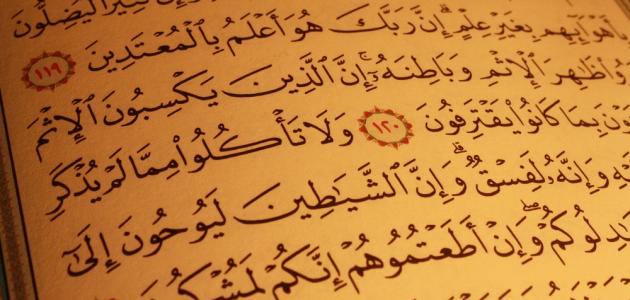 كَثِيرًا لَّيُضِلُّونَ
بِأَهْوَآئِهِم بِغَيْرِ عِلْمٍ ۗ إِنَّ رَبَّكَ هُوَ أَعْلَمُ بِٱلْمُعْتَدِينَ ١١٩
وَذَرُوا۟ ظَٰهِرَ ٱلْإِثْمِ وَبَاطِنَهُۥٓ ۚ إِنَّ ٱلَّذِينَ يَكْسِبُونَ ٱلْإِثْمَ
سَيُجْزَوْنَ بِمَا كَانُوا۟ يَقْتَرِفُونَ ١٢٠ وَلَا تَأْكُلُوا۟ مِمَّا لَمْ يُذْكَرِ
عَلَيْهِ وَإِنَّهُۥ لَفِسْقٌ ۗ وَإِنَّ ٱلشَّيَٰطِينَ لَيُوحُونَ إِلَىٰٓ
لِيُجَٰدِلُوكُمْ ۖ وَإِنْ أَطَعْتُمُوهُمْ إِنَّكُمْ لَمُشْرِكُونَ